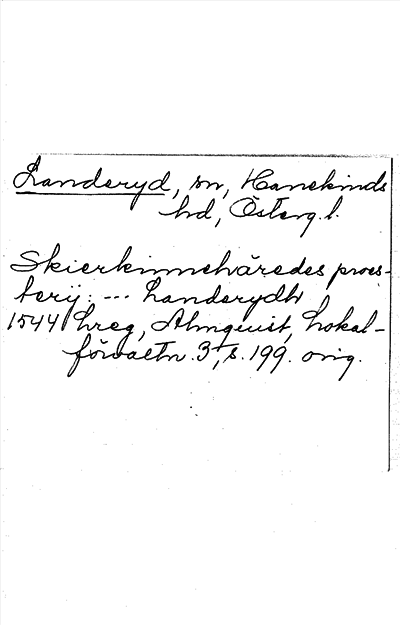 Landeryd, sn, Hanekinds
hd, Österg. l.
Skierkinnehäredes proes-
terij: --- Landerydh
1544 Lreg, Almquist, Lokal-
förvaltn. 3, s. 199. orig.